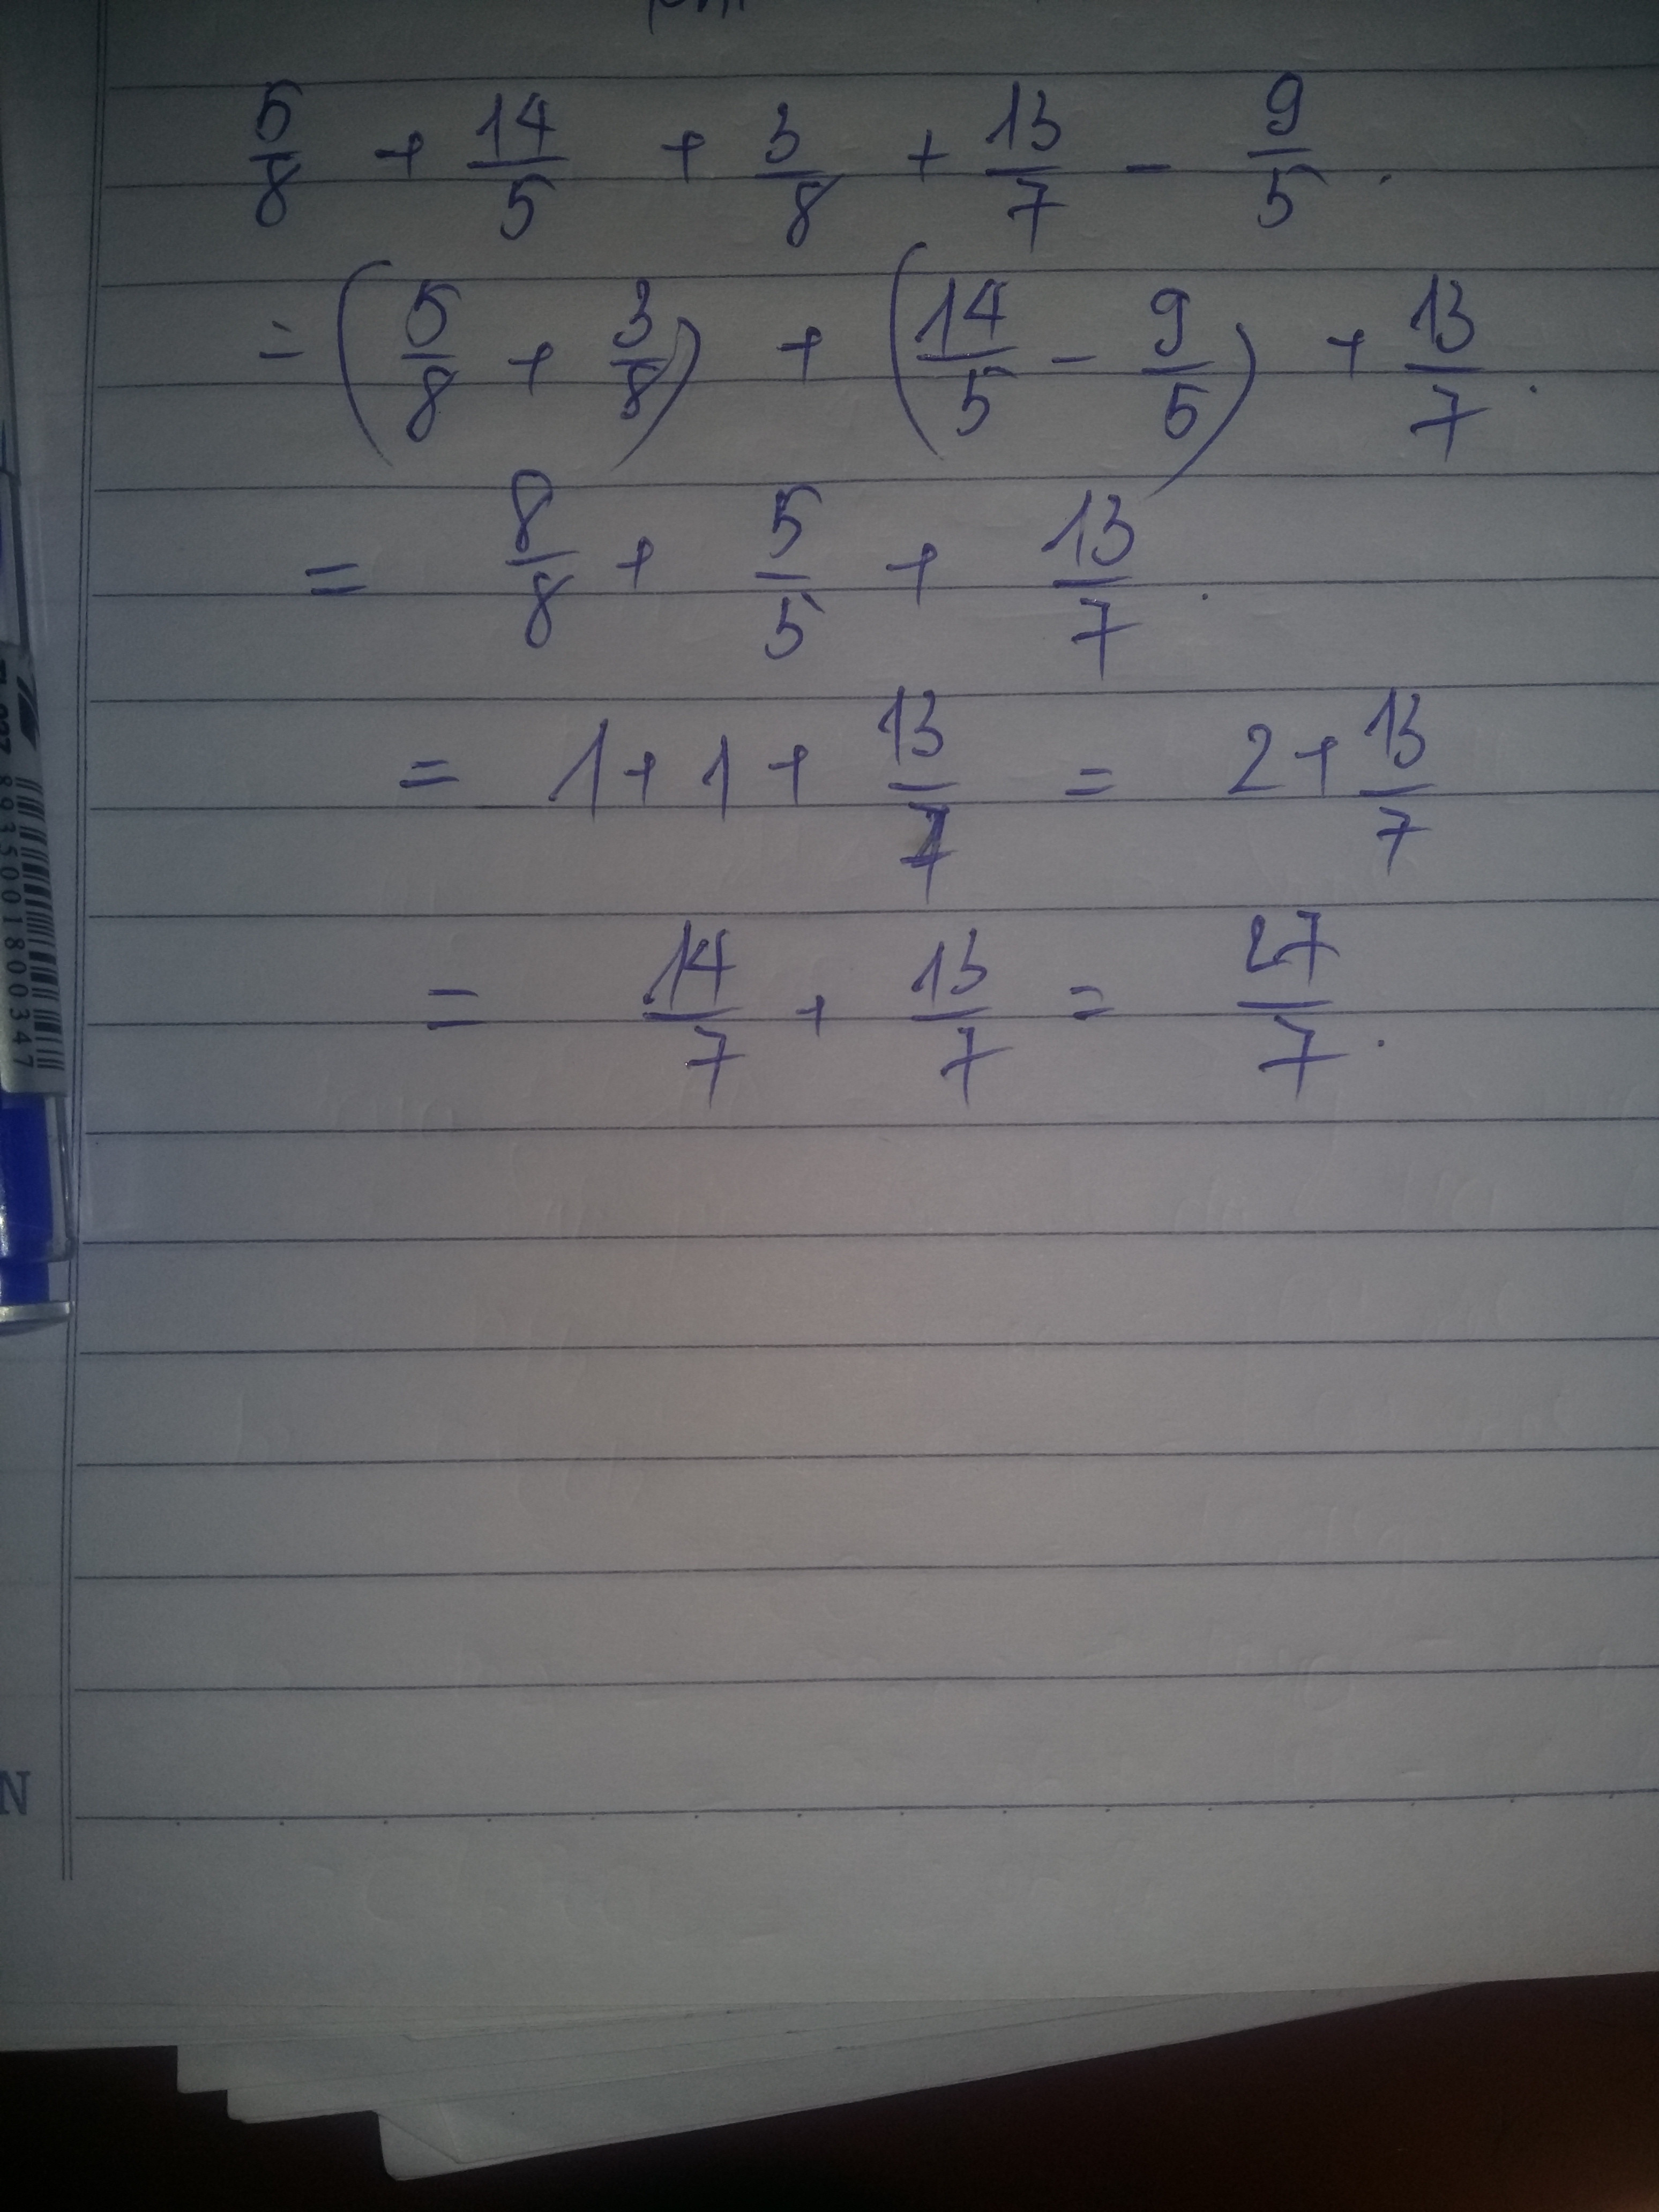 5/8 + 14/5 + 3/8 + 13/7 - 9/5 .
= (5/8 + 3/8) + (14/5 - 9/5) + 13/7 .
= 8/8 + 5/5 + 13/7 .
= 1 + 1 + 13/7 = 2 + 13/7
= 14/7 + 13/7 = 27/7 .
8935001800347
N